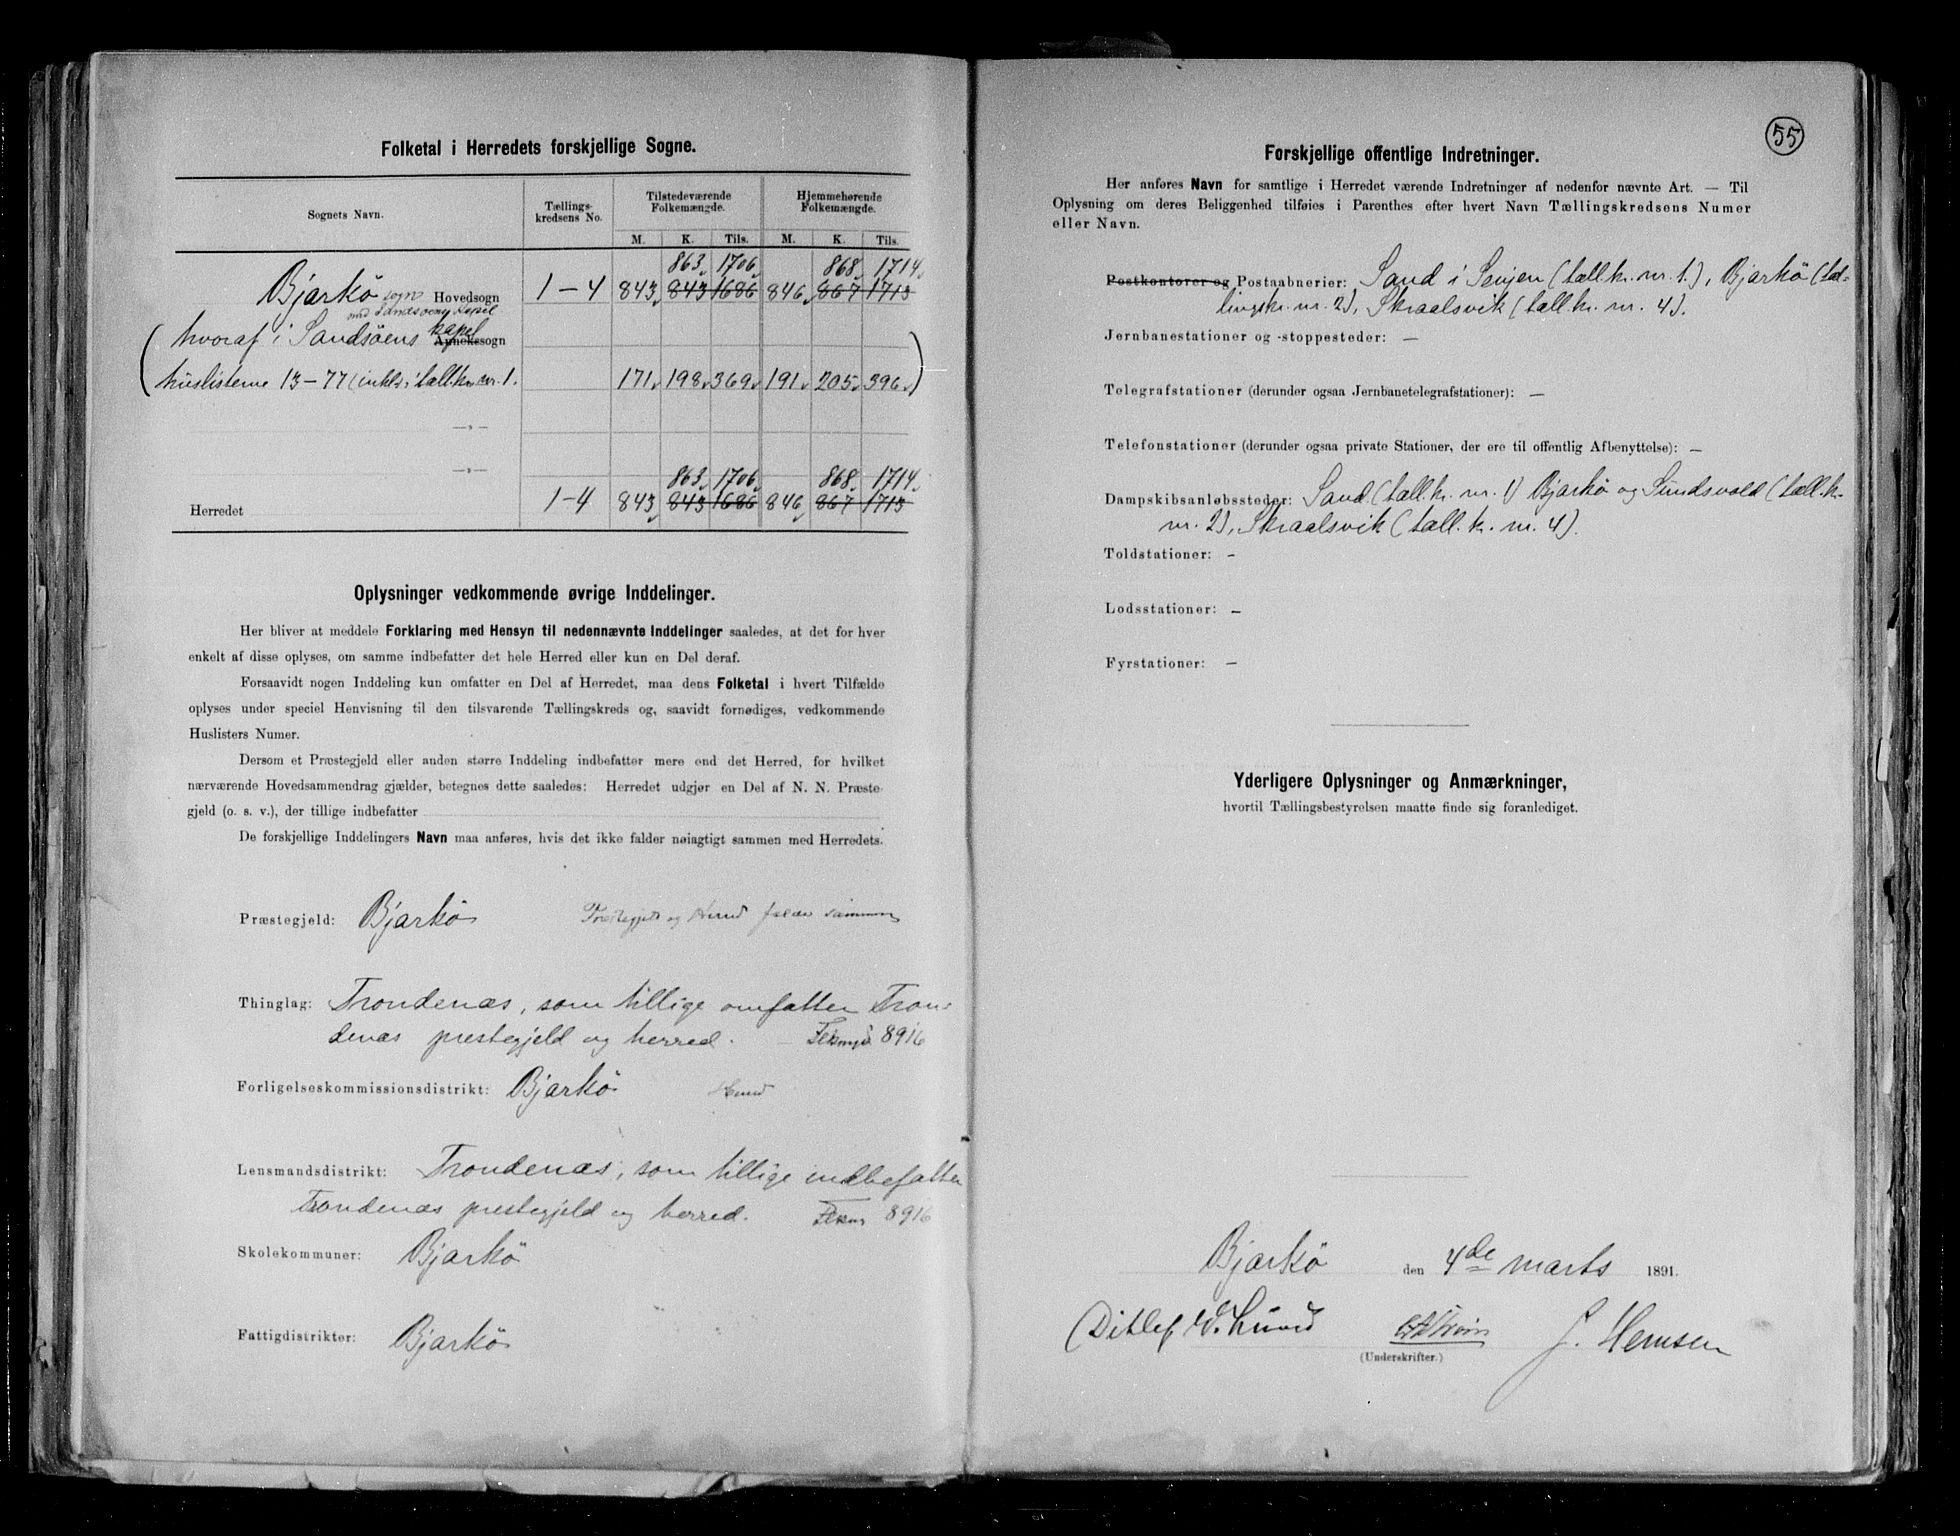 Folketal i Herredets forskjellige Sogne.
Sognets Navn.
Tællings-
kredsens No.
Tilstedeværende
Folkemængde.
Hjemmehørende
Folkemængde.
M. K. Tils. M. K. Tils.
863 1706 868 1714
Bjarkö sogn Hovedsogn 1-4 843 843 1686 846 867 1713
med Sandsøens Kapel
(hvoraf i Sandsöens kapel Annekssogn
huslisterne 13-77 (inkl. i tæll.kr. nr. 1. 171 198 369 191 205 396)
—»—
—»—
863 1706 868 1714
Herredet 1-4 843 843 1686 846 867 1713
Oplysninger vedkommende øvrige Inddelinger.
Her bliver at meddele Forklaring med Hensyn til nedennævnte Inddelinger saaledes, at det for hver
enkelt af disse oplyses, om samme indbefatter det hele Herred eller kun en Del deraf.
Forsaavidt nogen Inddeling kun omfatter en Del af Herredet, maa dens Folketal i hvert Tilfælde
oplyses under speciel Henvisning til den tilsvarende Tællingskreds og, saavidt fornødiges, vedkommende
Huslisters Numer.
Dersom et Præstegjeld eller anden større Inddeling indbefatter mere end det Herred, for hvilket
nærværende Hovedsammendrag gjælder, betegnes dette saaledes: Herredet udgjør en Del af N. N. Præste-
gjeld (o. s. v.), der tillige indbefatter
De forskjellige Inddelingers Navn maa anføres, hvis det ikke falder nøiagtigt sammen med Herredets.
Præstegjeld: Bjarkö Præstegjeld og Herred falder sammen
Thinglag: Trondenæs, som tillige omfatter Tron-
denæs prestegjeld og herred. 8916
Forligelseskommissionsdistrikt: Bjarkö Herred
Lensmandsdistrikt: Trondenæs, som tillige indbefatter
Trondenæs prestegjeld og herred. 8916
Skolekommuner: Bjarkö
Fattigdistrikter: Bjarkö
55
Forskjellige offentlige Indretninger.
Her anføres Navn for samtlige i Herredet værende Indretninger af nedenfor nævnte Art. — Til
Oplysning om deres Beliggenhed tilføies i Parenthes efter hvert Navn Tællingskredsens Numer
eller Navn.
Postkontorer og Postaabnerier: Sand i Senjen (tæll.kr. nr. 1.), Bjarkö (tæl-
lingskr. nr. 2), Skraalsvik (tæll.kr. nr. 4).
Jernbanestationer og -stoppesteder: —
Telegrafstationer (derunder ogsaa Jernbanetelegrafstationer): —
Telefonstationer (derunder ogsaa private Stationer, der ere til offentlig Afbenyttelse): —
Dampskibsanløbssteder: Sand (tæll.kr. nr. 1) Bjarkö og Sundsvold (tæll.kr.
nr. 2), Skraalsvik (tæll. kr. nr. 4).
Toldstationer: -
Lodsstationer: —
Fyrstationer: —
Yderligere Oplysninger og Anmærkninger,
hvortil Tællingsbestyrelsen maatte finde sig foranlediget.
Bjarkö den 4de marts 1891.
Ditlef V. Lund J. Hemsen
(Underskrifter.)